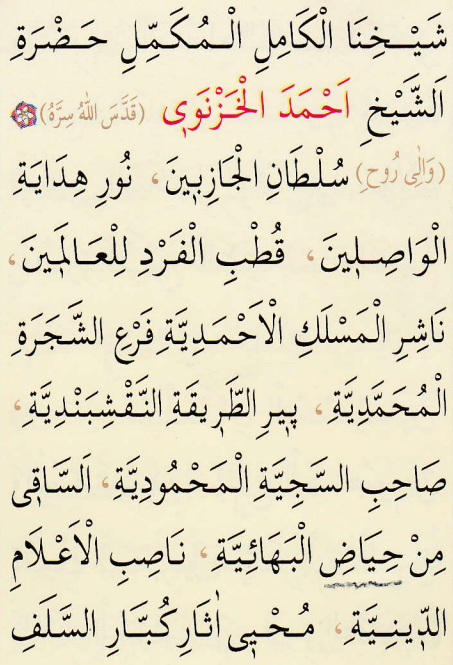 شَيْخِنَا الْكَامِلِ الْمُكَمِّلِ حَضْرَةِ
اَلشَّيْخِ اَحْمَدَ الْخَزْنَوِى (قَدَّسَ اللهُ سِرَّهُ)
(وَاِلٰى رُوحِ) سُلْطَانِ الْجَازِبِينَ، نُورِ هِدَايَةِ
الْوَاصِلِينَ، قُطْبِ الْفَرْدِ لِلْعَالَمِينَ،
نَاشِرِ الْمَسْلَكِ الْاَحْمَدِيَّةِ فَرْعِ الشَّجَرَةِ
الْمُحَمَّدِيَّةِ، پِيرِ الطَّرِيقَةِ النَّقْشِبَنْدِيَّةِ،
صَاحِبِ السَّجِيَّةِ الْمَحْمُودِيَّةِ، اَلسَّاقِى
مِنْ حِيَاضِ الْبَهَائِيَّةِ، نَاصِبِ الْاَعْلَامِ
الدِّينِيَّةِ، مُحْيِى اٰثَارِ كُبَّارِ السَّلَفِ